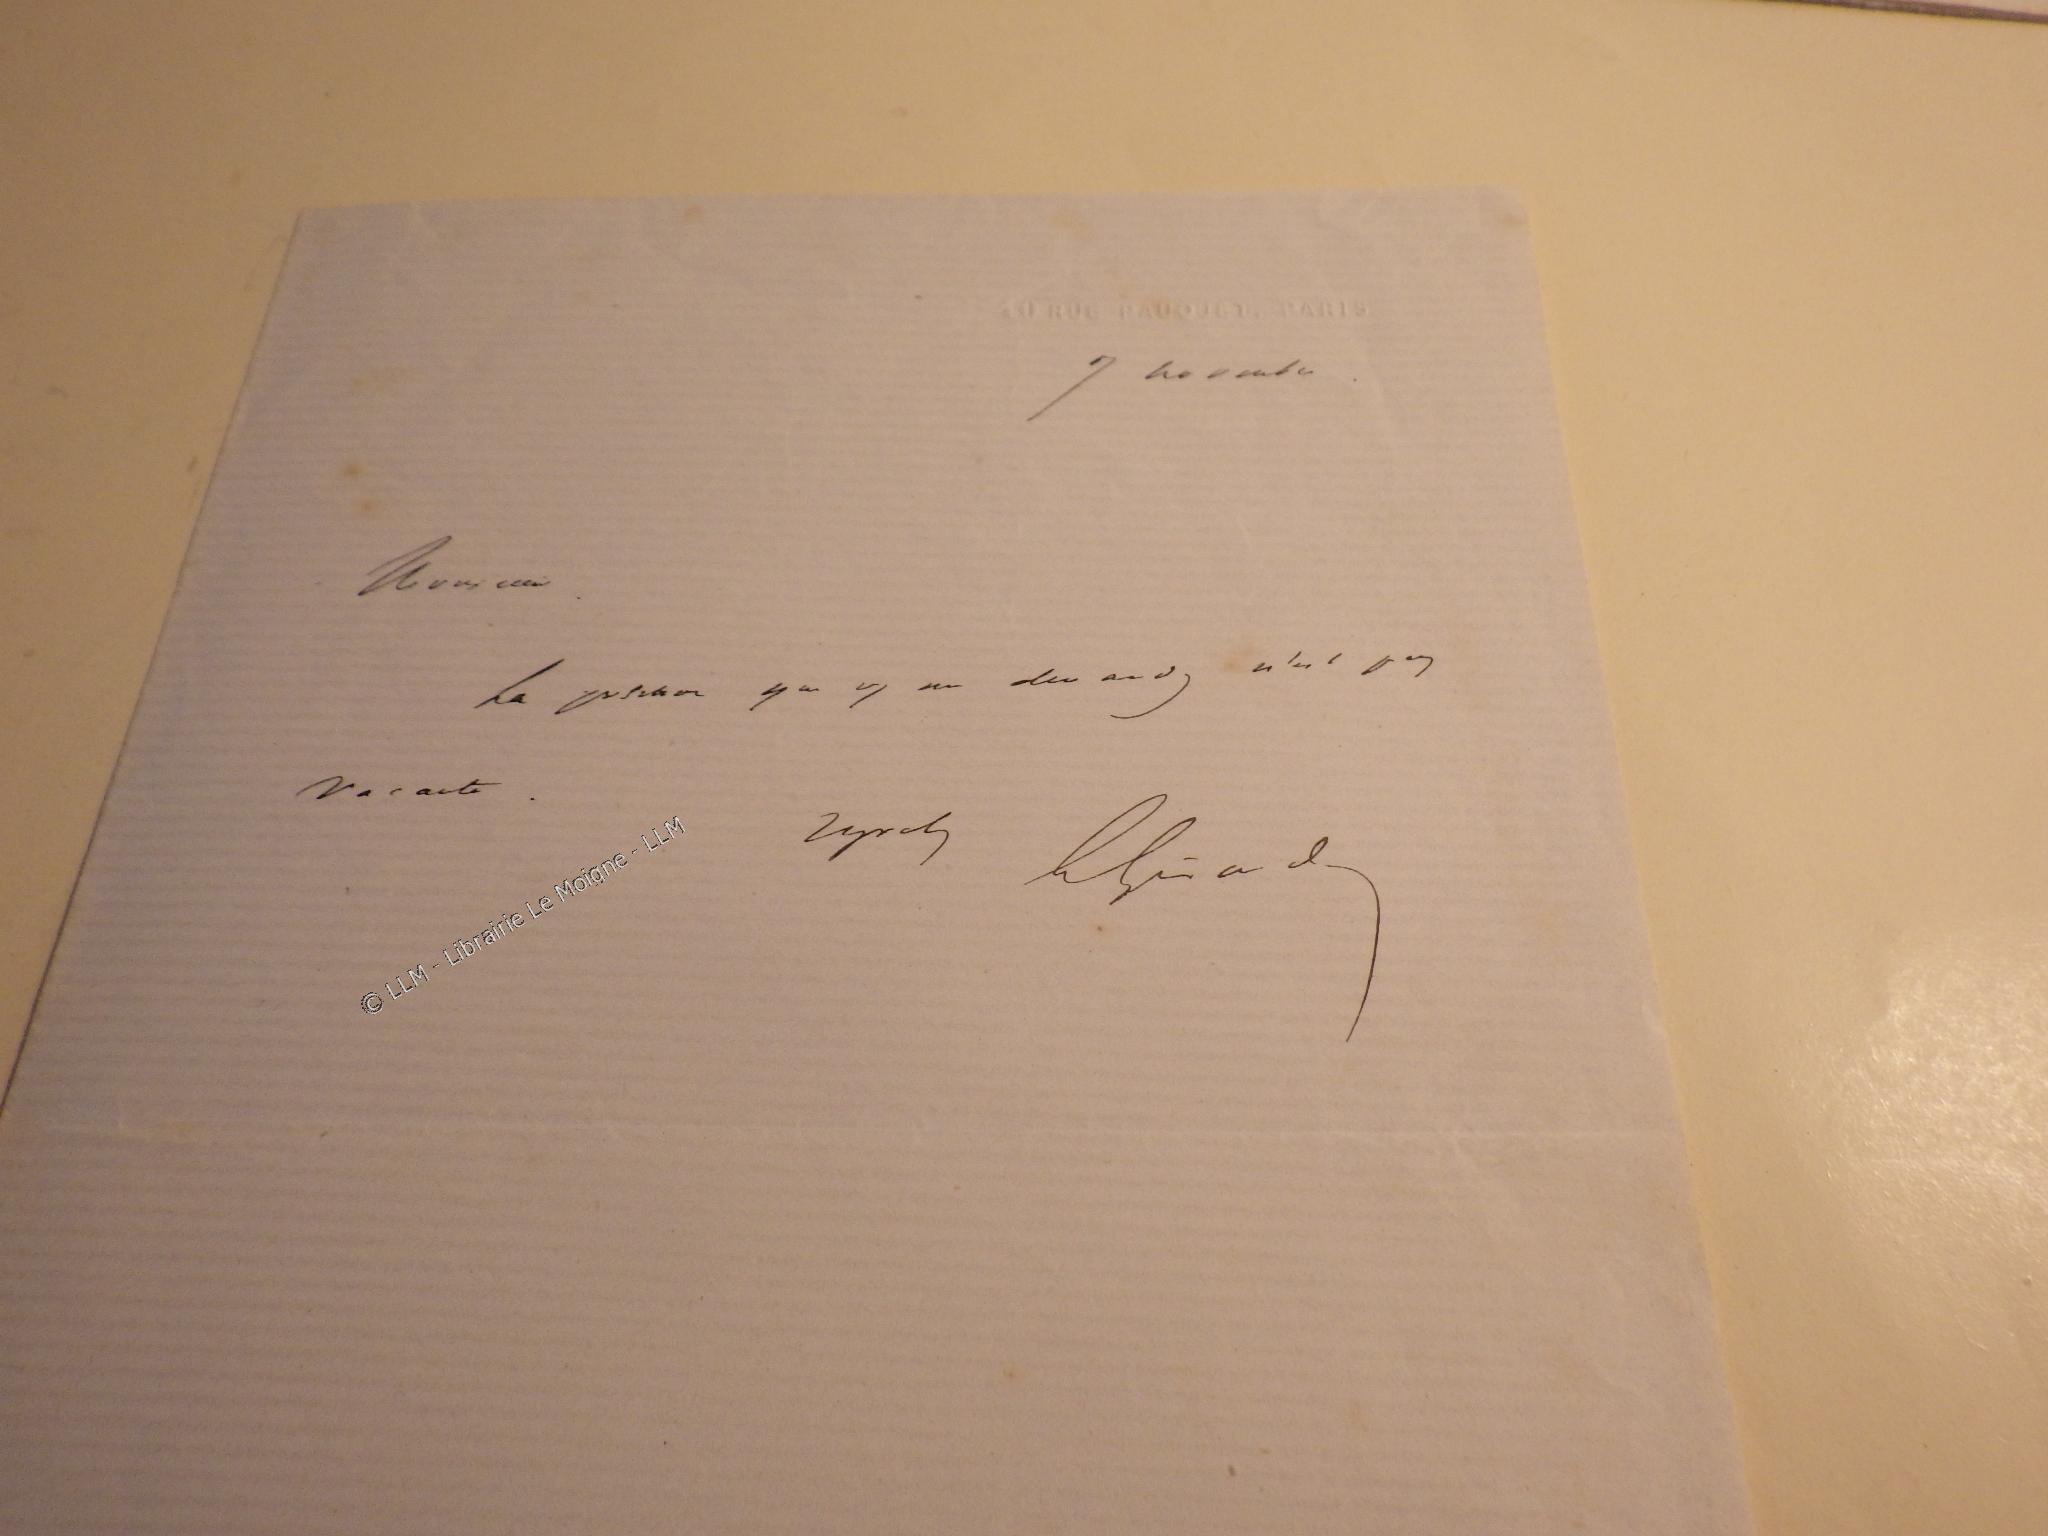 RUE PAUQUET, PARIS
7 novembre.
Monsieur,
La position que v me demandez n'est pas
vacante.
Girardin
© LLM - Librairie Le Moigne - LLM